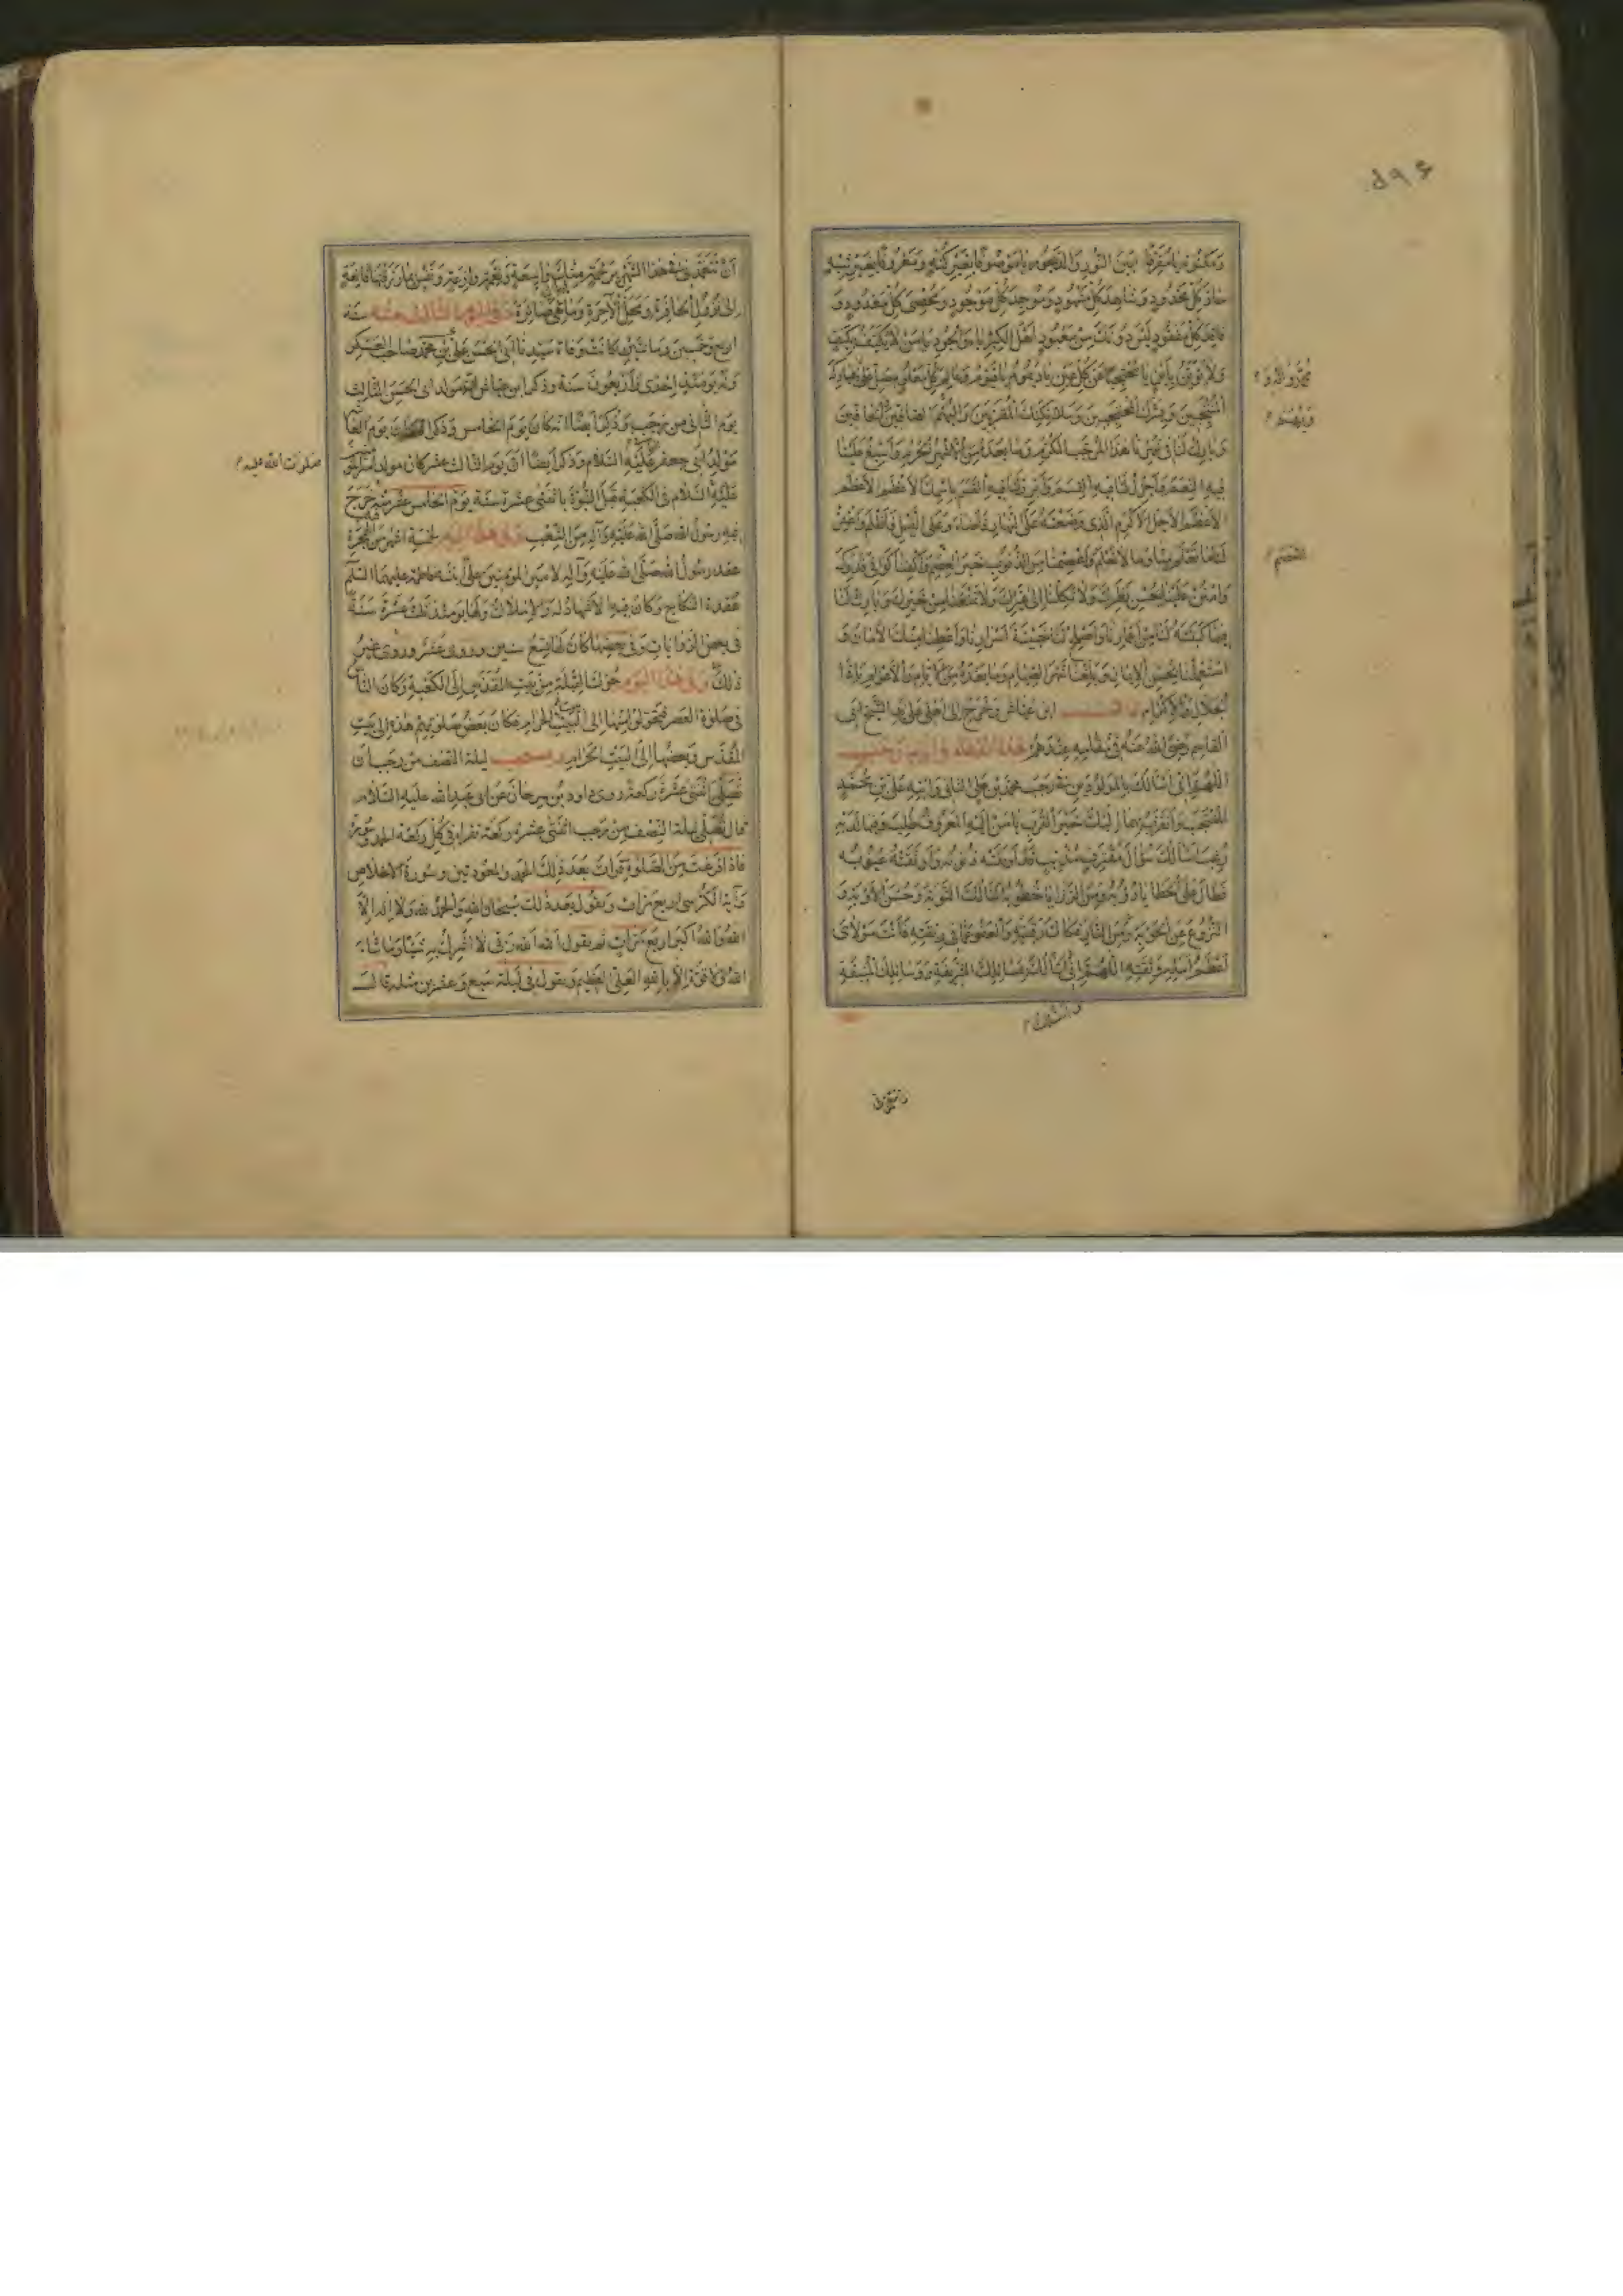 ۵۹۶
وَمَكْنُونِهِ يَا مُفَرِّقًا بَيْنَ النُّورِ وَالدَّيْجُورِ يَا مَوْصُوفًا بِغَيْرِ كُنْهٍ وَمَعْرُوفًا بِغَيْرِ شِبْهٍ
حَادَّ كُلِّ مَحْدُودٍ وَشَاهِدَ كُلِّ مَشْهُودٍ وَمُوجِدَ كُلِّ مَوْجُودٍ وَمُحْصِيَ كُلِّ مَعْدُودٍ وَ
فَاقِدَ كُلِّ مَفْقُودٍ لَيْسَ دُونَكَ مِنْ مَعْبُودٍ اَهْلَ الْكِبْرِيَاءِ وَالْجُودِ يَا مَنْ لَا يُكَيَّفُ بِكَيْفٍ
وَلَا يُؤَيَّنُ بِاَيْنٍ يَا مُحْتَجِبًا عَنْ كُلِّ عَيْنٍ يَا دَيْمُومُ يَا قَيُّومُ وَعَالِمَ كُلِّ مَعْلُومٍ صَلِّ عَلَى عِبَادِكَ
الْمُنْتَجَبِينَ وَبَشَرِكَ الْمُحْتَجِبِينَ وَمَلَائِكَتِكَ الْمُقَرَّبِينَ وَالْبُهْمِ الصَّافِّينَ الْحَافِّينَ
وَبَارِكْ لَنَا فِي شَهْرِنَا هَذَا الْمُرَجَّبِ الْمُكَرَّمِ وَمَا بَعْدَهُ مِنَ الْاَشْهُرِ الْحُرُمِ وَاَسْبِغْ عَلَيْنَا
فِيهِ النِّعَمَ وَاَجْزِلْ لَنَا فِيهِ الْقِسَمَ وَاَبْرِرْ لَنَا فِيهِ الْقَسَمَ بِاسْمِكَ الْاَعْظَمِ الْاَعْظَمِ
الْاَعْظَمِ الْاَجَلِّ الْاَكْرَمِ الَّذِي وَضَعْتَهُ عَلَى النَّهَارِ فَاَضَاءَ وَعَلَى اللَّيْلِ فَاَظْلَمَ وَاغْفِرْ
لَنَا مَا تَعْلَمُ مِنَّا وَمَا لَا نَعْلَمُ وَاعْصِمْنَا مِنَ الذُّنُوبِ خَيْرَ الْعِصَمِ وَاكْفِنَا كَوَافِيَ قَدَرِكَ
وَامْنُنْ عَلَيْنَا بِحُسْنِ نَظَرِكَ وَلَا تَكِلْنَا اِلَى غَيْرِكَ وَلَا تَمْنَعْنَا مِنْ خَيْرِكَ وَبَارِكْ لَنَا
فِيمَا كَتَبْتَهُ لَنَا مِنْ اَعْمَارِنَا وَاَصْلِحْ لَنَا خَبِيئَةَ اَسْرَارِنَا وَاَعْطِنَا مِنْكَ الْاَمَانَ وَ
اسْتَعْمِلْنَا بِحُسْنِ الْاِيمَانِ وَبَلِّغْنَا شَهْرَ الصِّيَامِ وَمَا بَعْدَهُ مِنَ الْاَيَّامِ وَالْاَعْوَامِ يَا ذَا
الْجَلَالِ وَالْاِكْرَامِ قال ابن عياش وخرج الى اهلي على يد الشيخ ابي
القاسم رضي الله عنه في مقامه عندهم هذا الدعاء في ايام رجب
اللّٰهُمَّ اِنِّي اَسْاَلُكَ بِالْمَوْلُودَيْنِ فِي رَجَبٍ مُحَمَّدِ بْنِ عَلِيٍّ الثَّانِي وَابْنِهِ عَلِيِّ بْنِ مُحَمَّدٍ
الْمُنْتَجَبِ وَاَتَقَرَّبُ بِهِمَا اِلَيْكَ خَيْرَ الْقُرَبِ يَا مَنْ اِلَيْهِ الْمَعْرُوفُ طُلِبَ وَفِيمَا لَدَيْهِ
رُغِبَ اَسْاَلُكَ سُؤَالَ مُقْتَرِفٍ مُذْنِبٍ قَدْ اَوْبَقَتْهُ ذُنُوبُهُ وَاَوْثَقَتْهُ عُيُوبُهُ
فَطَالَ عَلَى الْخَطَايَا دُؤُوبُهُ وَمِنَ الرَّزَايَا خُطُوبُهُ يَسْاَلُكَ التَّوْبَةَ وَحُسْنَ الْاَوْبَةِ وَ
النُّزُوعَ عَنِ الْحَوْبَةِ وَمِنَ النَّارِ فَكَاكَ رَقَبَتِهِ وَالْعَفْوَ عَمَّا فِي رِبْقَتِهِ فَاَنْتَ مَوْلَايَ
اَعْظَمُ اَمَلِهِ وَثِقَتِهِ اللّٰهُمَّ اِنِّي اَسْاَلُكَ بِمَسَائِلِكَ الشَّرِيفَةِ وَوَسَائِلِكَ الْمُنِيفَةِ
مُحَمَّدٍ وَآلِهِ وَ
وَبُهْمِ
الْعِصَمِ
اَنْ تَتَغَمَّدَنِي فِي هَذَا الشَّهْرِ بِرَحْمَةٍ مِنْكَ وَاسِعَةٍ وَنِعْمَةٍ وَازِعَةٍ وَنَفْسٍ بِمَا رَزَقْتَهَا قَانِعَةٍ
اِلَى نُزُولِ الْحَافِرَةِ وَمَحَلِّ الْآخِرَةِ وَمَا هِيَ اِلَيْهِ صَائِرَةٌ وفى اليوم الثالث منه سنة
اربع وخمسين وماتين كانت وفاة سيدنا ابي الحسن علي بن محمد صاحب العسكر
وله يومئذ احدى واربعون سنة وذكر ابن عياش انه مولد ابى الحسن الثالث
يوم الثاني من رجب وذكر ايضا انه كان يوم الخامس وذكر ان يوم العاشر
مولد ابي جعفر عليه السلام وذكر ايضا ان يوم الثالث عشر كان مولد امير المؤمنين
عليه السلام فى الكعبة قبل النبوة باثنتي عشرة سنة يوم الخامس عشر منه خرج
فيه رسول الله صلى الله عليه وآله من الشعب وفى هذا اليوم لخمسة اشهر من الهجرة
عقد رسول الله صلى الله عليه وآله لامير المؤمنين علي ابنته فاطمة عليهما السلم
عقدة النكاح وكان فيه الاشهاد له والاملاك ولها يومئذ ثلث عشرة سنة
فى بعض الروايات وفى بعضها كان لها تسع سنين وروى عشر وروى غير
ذلك وفى هذا اليوم حولت القبلة من بيت المقدس الى الكعبة وكان الناس
فى صلوة العصر فتحولوا منها الى البيت الحرام فكان بعض صلوتهم هذه الى بيت
المقدس وبعضها الى البيت الحرام ويستحب ليلة النصف من رجب ان
تصلى اثنتى عشرة ركعة روى داود بن سرحان عن ابى عبد الله عليه السلام
قال تصلى ليلة النصف من رجب اثنتى عشرة ركعة تقرأ فى كل ركعة الحمد وسورة
فاذا فرغت من الصلوة قرات بعد ذلك الحمد والمعوذتين وسورة الاخلاص
وآية الكرسى اربع مرات وتقول بعد ذلك سبحان الله والحمد لله ولا اله الا
الله والله اكبر اربع مرات ثم تقول الله الله ربى لا اشرك به شيئا وما شاء
الله لا قوة الا بالله العلي العظيم وتقول فى ليلة سبع وعشرين مثله قال
صلوات الله عليه